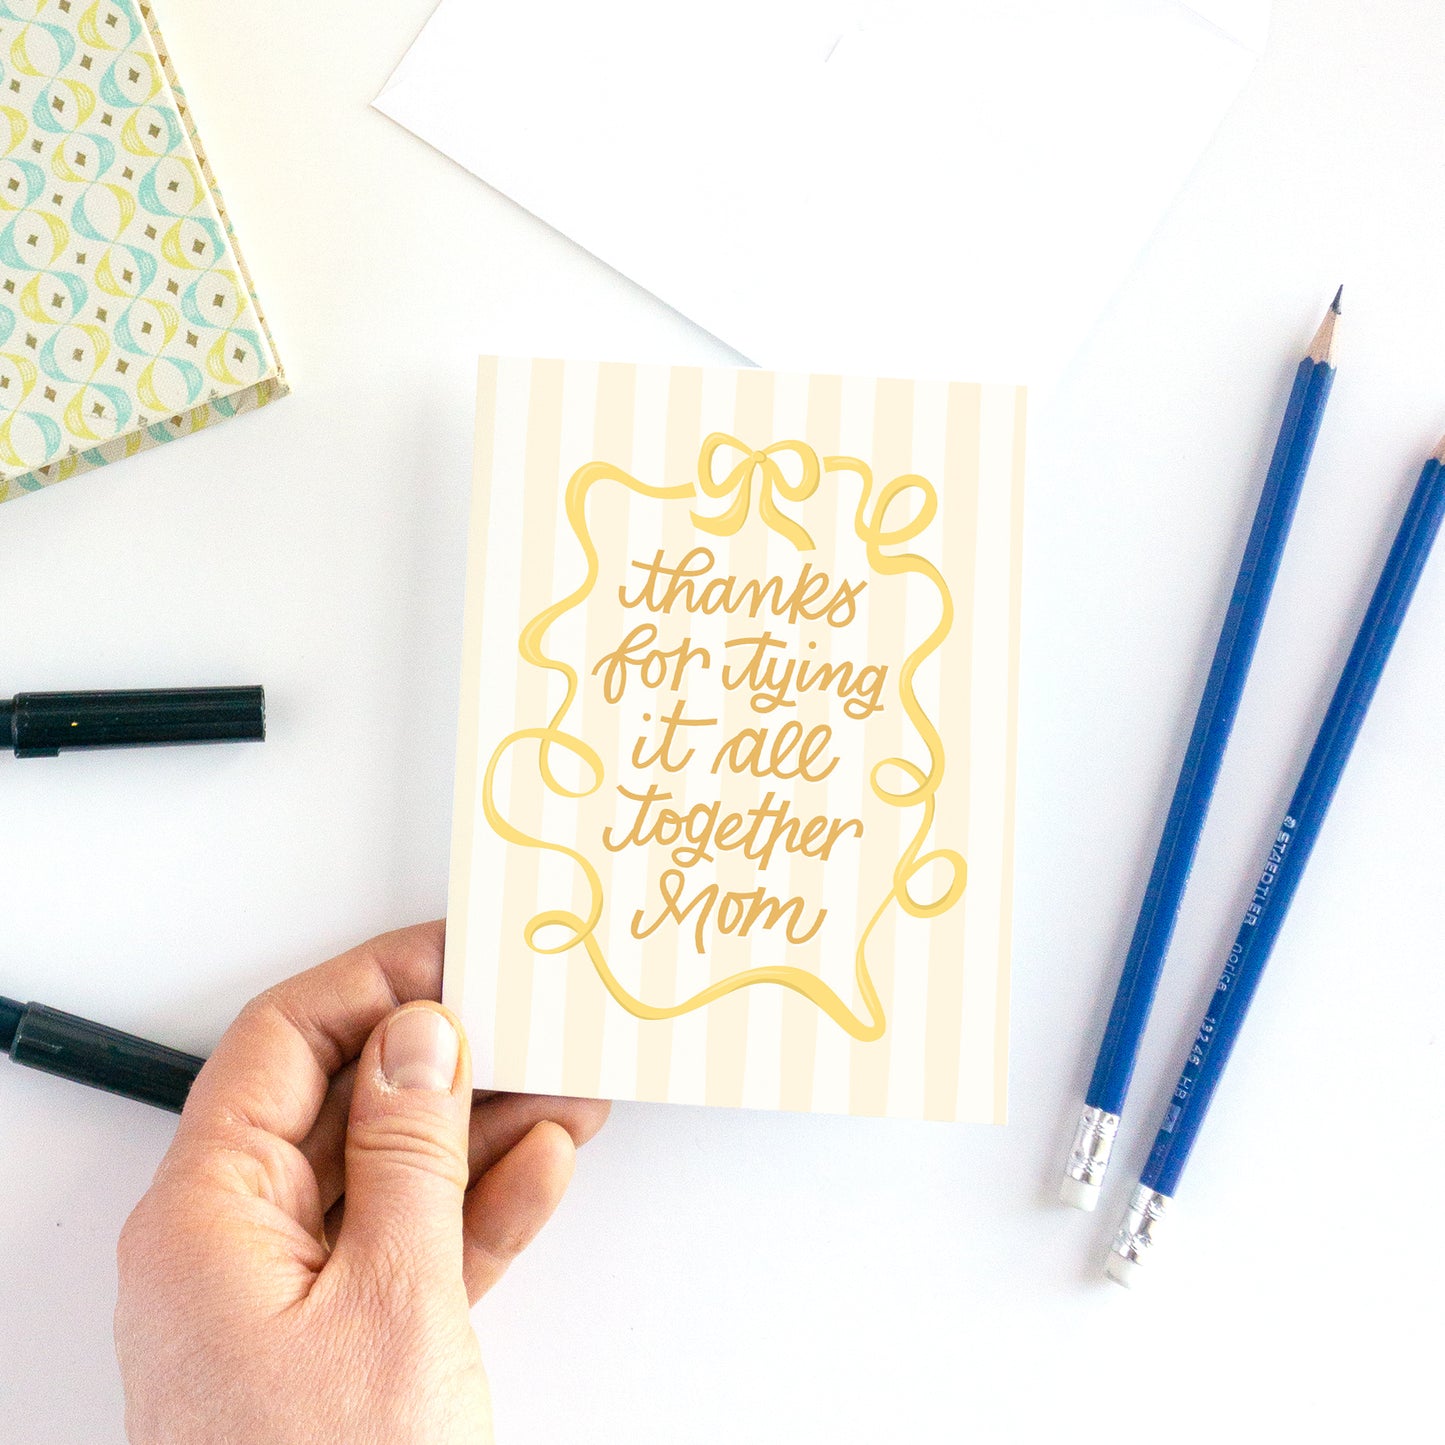 thanks
for tying
it all
together
Mom
STAEDTLER norica 132 46 HB